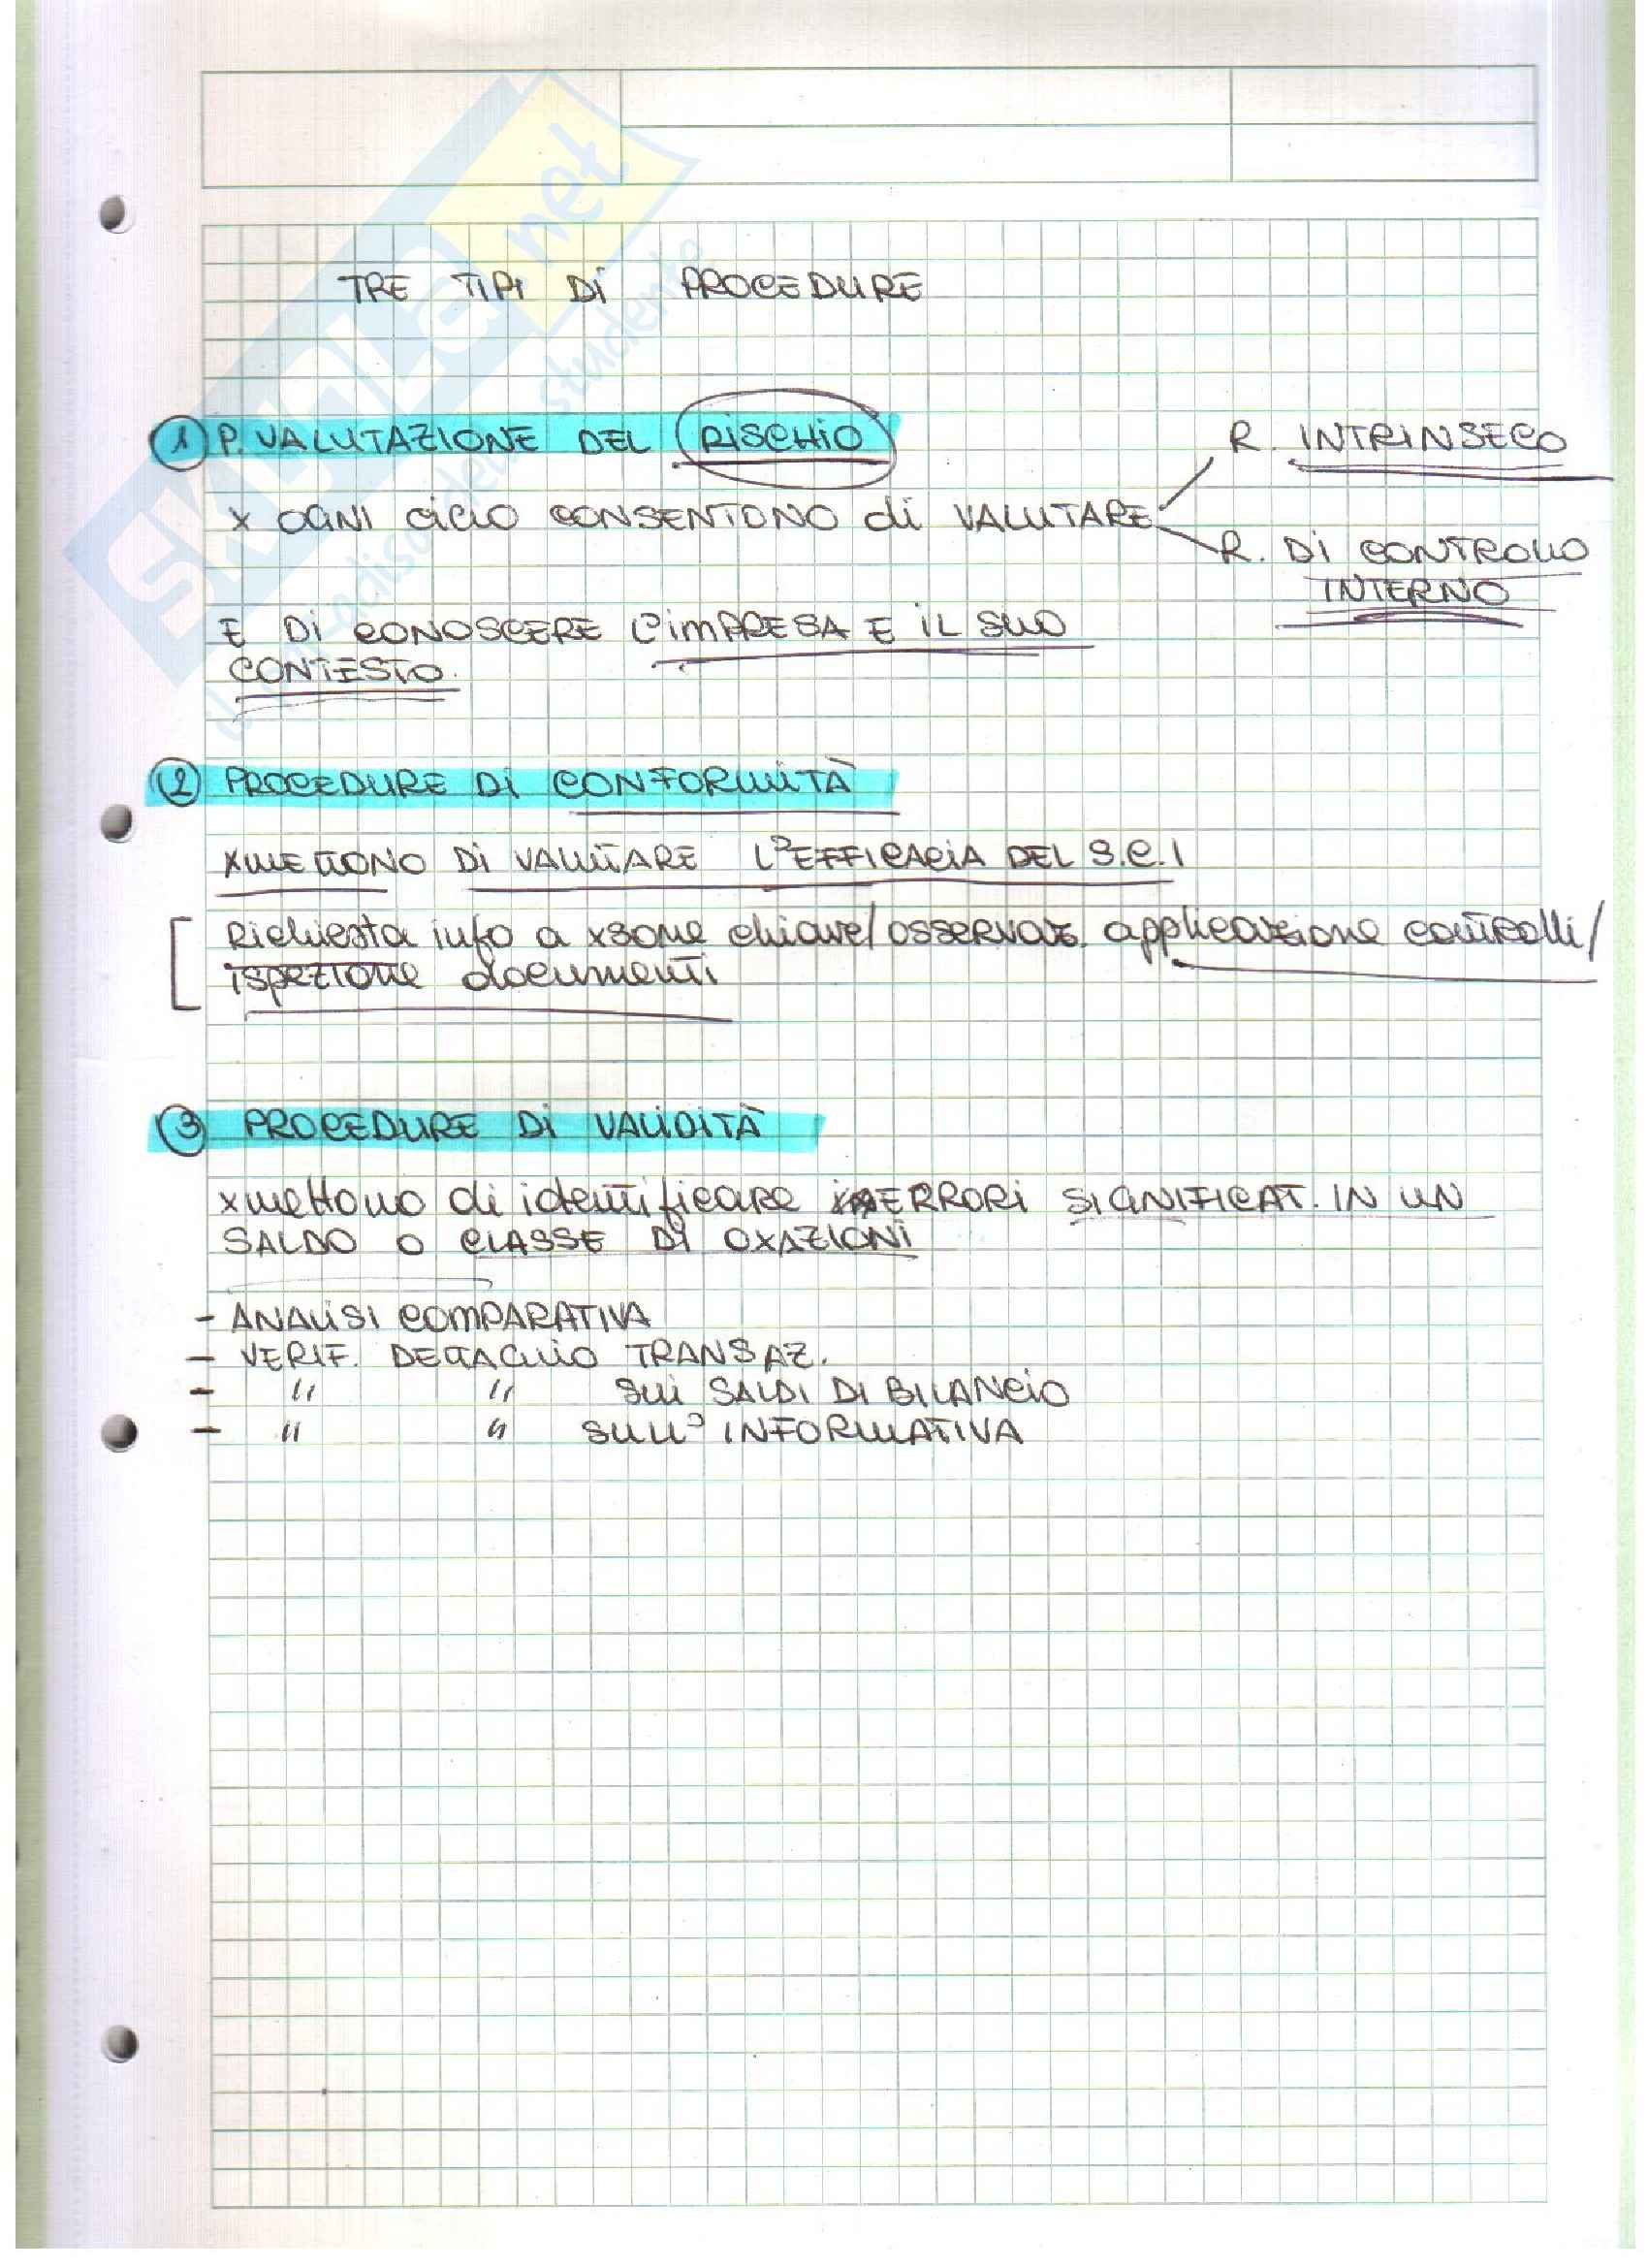 skuola.net
TRE TIPI Di PROCEDURE
1 P. VALUTAZIONE DEL RISCHIO
R. INTRINSECO
x OGNI ciclo CONSENTONO di VALUTARE
R. Di CONTROLLO
INTERNO
E Di CONOSCERE L'iMPRESA E iL SUO
CONTESTO.
2 PROCEDURE Di CONFORMITÀ
XMETTONO Di VALUTARE L'EFFICACIA DEL S.C.I
Richiesta info a xsone chiave/osservaz. applicazione controlli/
ispezione documenti
3 PROCEDURE Di VALIDITÀ
xmettono di identificare ERRORi SIGNIFICAT. IN UN
SALDO O CLASSE Di OXAZIONi
- ANALISI COMPARATIVA
- VERIF. DETTAGLIO TRANSAZ.
- " " SUI SALDI DI BILANCiO
- " " SULL' INFORMATIVA